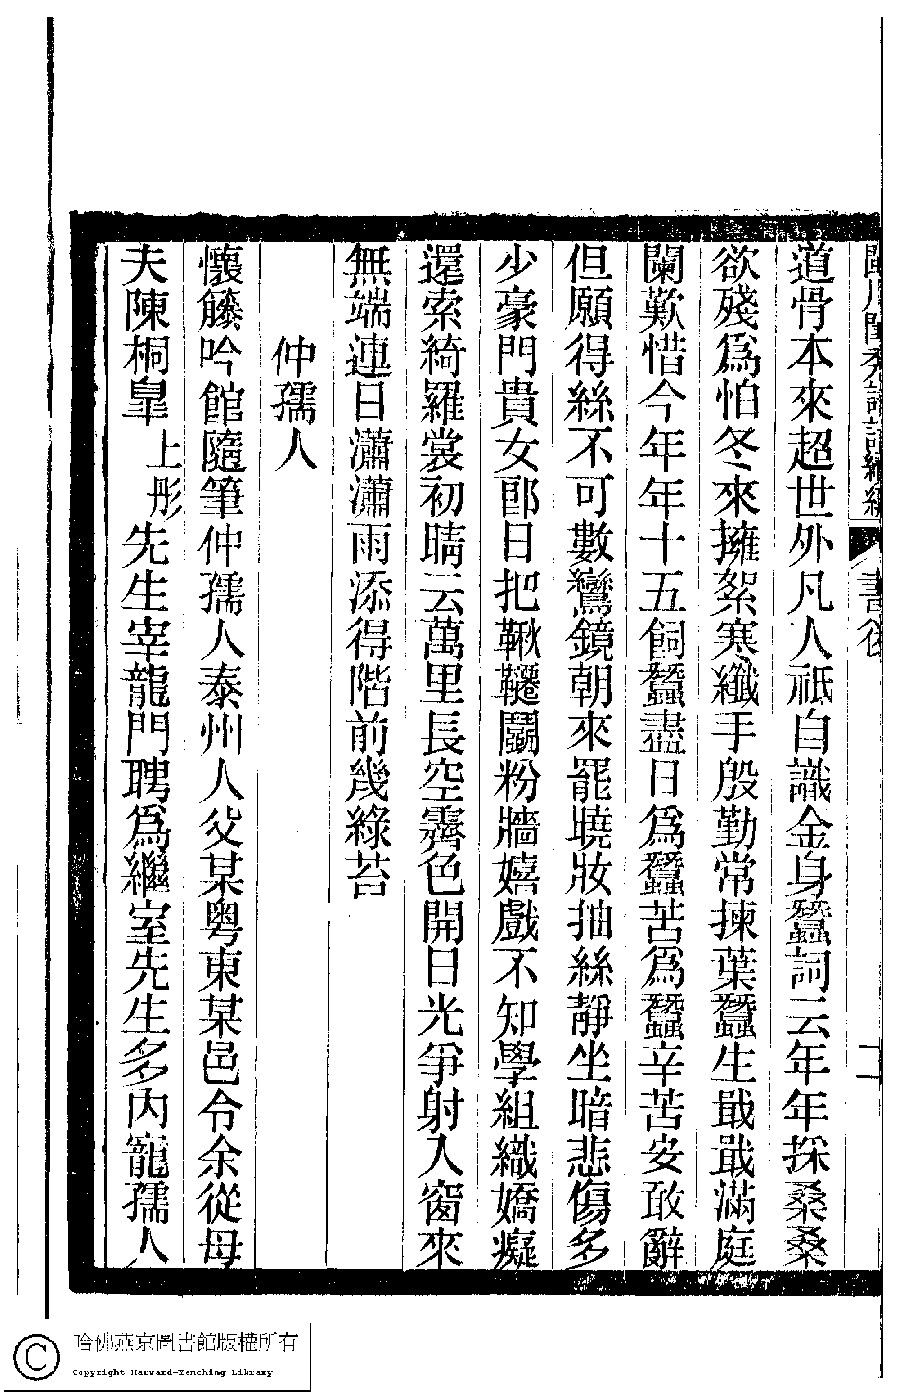 閨秀詩話續編
書後
二
道骨本來超世外凡人祗自識金身蠶詞云年年採桑桑
欲殘爲怕冬來擁絮寒纖手殷勤常揀葉蠶生戢戢滿庭
闌歎惜今年年十五飼蠶盡日爲蠶苦爲蠶辛苦安敢辭
但願得絲不可數鸞鏡朝來罷曉妝抽絲靜坐暗悲傷多
少豪門貴女郎日把鞦韆鬭粉牆嬉戲不知學組織嬌癡
還索綺羅裳初晴云萬里長空霽色開日光爭射入窗來
無端連日瀟瀟雨添得階前幾綠苔
仲孺人
懷籐吟館隨筆仲孺人泰州人父某粵東某邑令余從母
夫陳桐皐上彤先生宰龍門聘爲繼室先生多內寵孺人
哈佛燕京圖書館版權所有
Copyright Harvard-Yenching Library